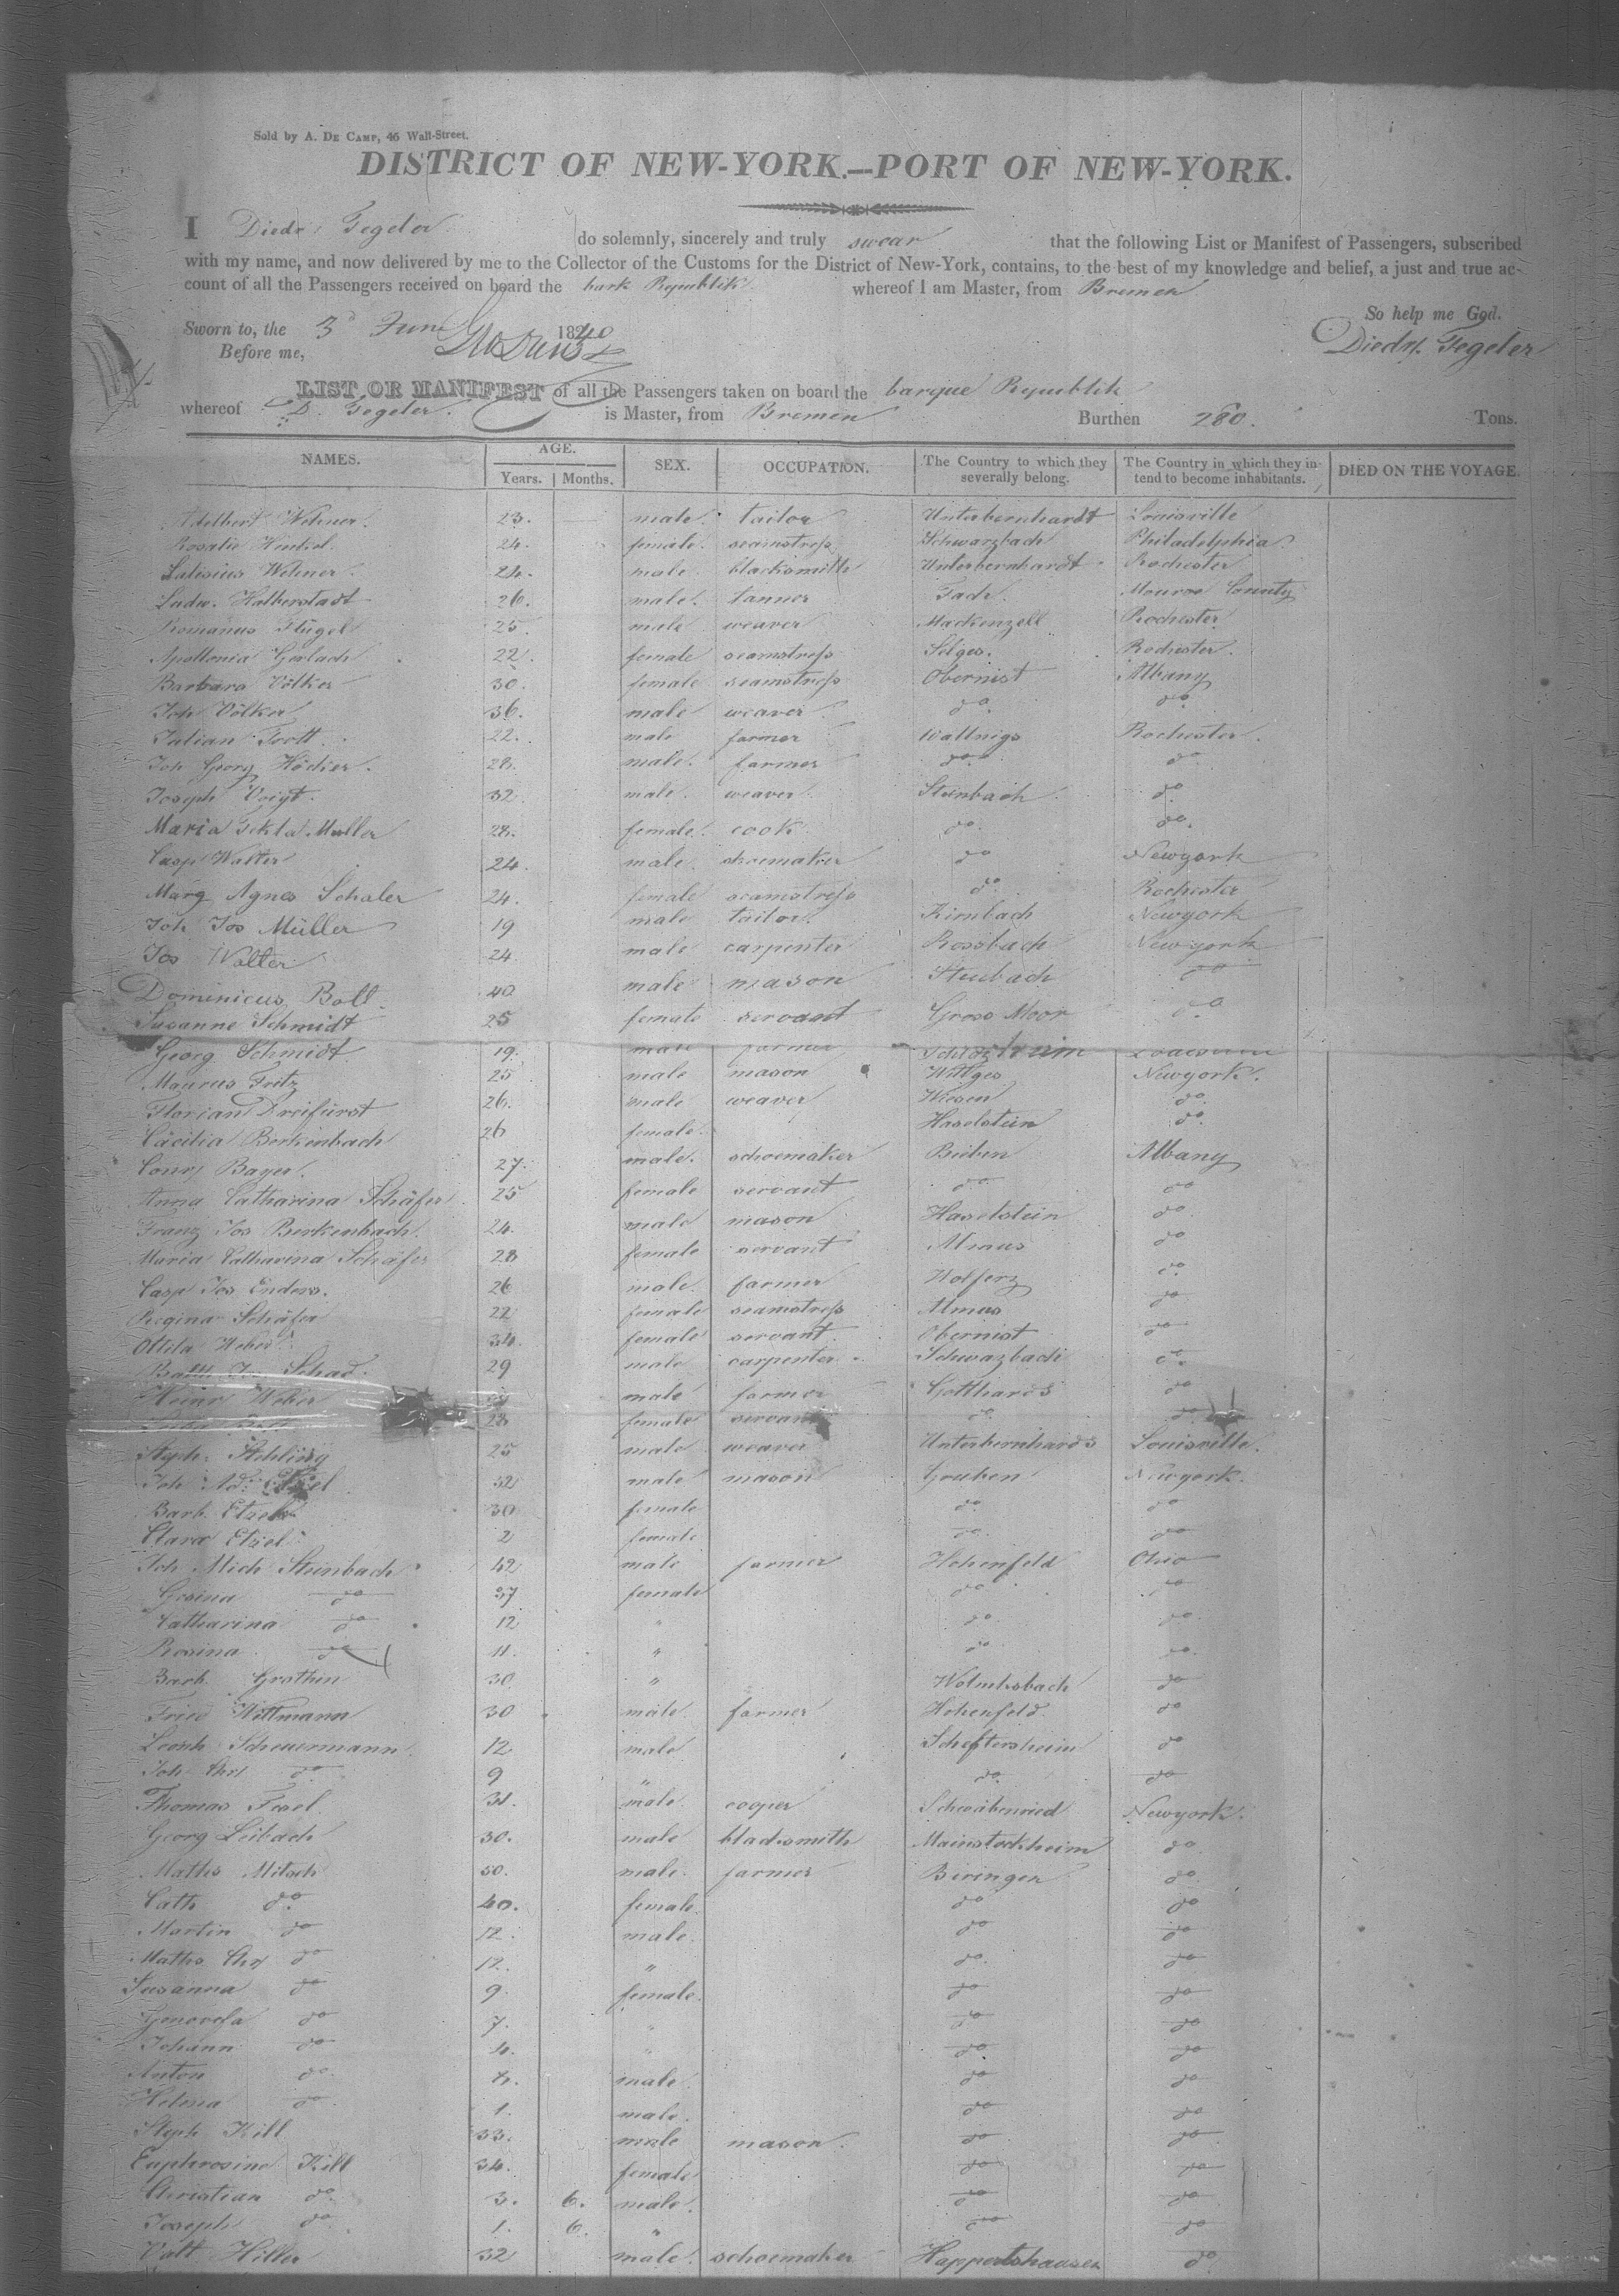 Sold by A. De Camp, 46 Wall-Street.
DISTRICT OF NEW-YORK.—PORT OF NEW-YORK.
I Diedr: Tegeler do solemnly, sincerely and truly swear that the following List or Manifest of Passengers, subscribed
with my name, and now delivered by me to the Collector of the Customs for the District of New-York, contains, to the best of my knowledge and belief, a just and true ac-
count of all the Passengers received on board the bark Republik whereof I am Master, from Bremen
So help me God.
Sworn to, the 3d June 1840
Before me,
Diedr. Tegeler
LIST OR MANIFEST of all the Passengers taken on board the barque Republik
whereof D. Tegeler. is Master, from Bremen Burthen 280. Tons.
NAMES. AGE. Years. Months. SEX. OCCUPATION. The Country to which they severally belong. The Country in which they intend to become inhabitants. DIED ON THE VOYAGE.
Adelbert Wehner. 23. male. tailor Unterbernhardt Louisville
Rosalie Henkel. 24. female. seamstress Schwarzbach Philadelphia
Wehner. 24. male. blacksmith Unterbernhardt Rochester
Ludw. Halberstadt 26. male. tanner Fach. Monroe County
Romanus Flügel 25. male weaver Mackenzell Rochester
Apollonia Gerlach 22. female seamstress Silges. Rochester.
Barbara Völker 30. female seamstress Obernist Albany
Joh Völker 36. male weaver do. do.
Julian Trott. 22. male farmer Wallnigs Rochester.
Joh Georg Hödier. 28. male. farmer do. do.
Joseph Voigt. 32. male. weaver Steinbach do.
Maria Tekla Muller 28. female. cook do. do.
Casp Walter 24. male. shoemaker do Newyork
Marg Agnes Schaler 24. female seamstress do. Rochester
Joh Jos Müller 19 male tailor. Kirnbach Newyork
Jos Walter 24 male carpenter Rossbach New york
Dominicus Boll. 40 male mason Steinbach do
Susanne Schmidt 25 female servant Gross Moor do
Georg Schmidt 19. male farmer
Maurus Fritz 25 male mason Wittges Newyork.
Florian Dreifürst 26. male weaver Wiesen do.
Cäcilia Berkenbach 26 female. Haselstein do.
Conr Bayer. 27. male. schoemaker Rieben Albany
Anna Catharina Schäfer 25 female servant do do
Franz Jos Berkenbach. 24. male mason Haselstein do.
Maria Catharina Schäfer 28 female servant Almus do
Casp Jos Enders. 26 male. farmer Wolferz do.
Regina Schäfer 22 female seamstress Almus do
Otilla Weber 34. female servant. Obernist do
Schad. 29 male carpenter. Schwazbach do.
Heinr Weber male farmer Gotthards do
28 female servant do. do
Steph. Stehling 25 male weaver Unterbernhards Louisville.
Joh Ad: 32 male mason Gruben Newyork.
Barb. Etzel 30 female do. do
Clara Etzel 2 female do. do
Joh Mich Steinbach 42 male farmer Hohenfeld Ohio
Gesina do 37 female do do
Catharina do 12 " do. do.
Rosina do 11. " do do.
Barb. Grothin 30 " Wolmbsbach do
Fried Wittmann 30 male farmer Hohenfeld. do
Leonh Scheuermann. 12 male Scheftersheim do
Joh Chr do 9 " do. do
Thomas Fesel. 31. male. cooper Schwäbenried Newyork.
Georg Leibach 30. male blacksmith Mainstockheim do.
Mathis Mitsch 50. male. farmer Biringen do.
Cath do. 40. female. do do
Martin do 12. male. do do
Mathis Chr do 12. " do. do
Susanna do 9. female. do do
Genovefa do 7. " do do
Johann do 4. " do do
Anton do. 4. male. do do
Helena do. 1. male. do do
Steph Kill 33. male mason. do do
Euphrosine Kill 34. female do do
Christian do. 3. 6. male. do do
Joseph do. 1. 6. " do do
Valt Hiller 32 male. schoemaker Happertshausen do.